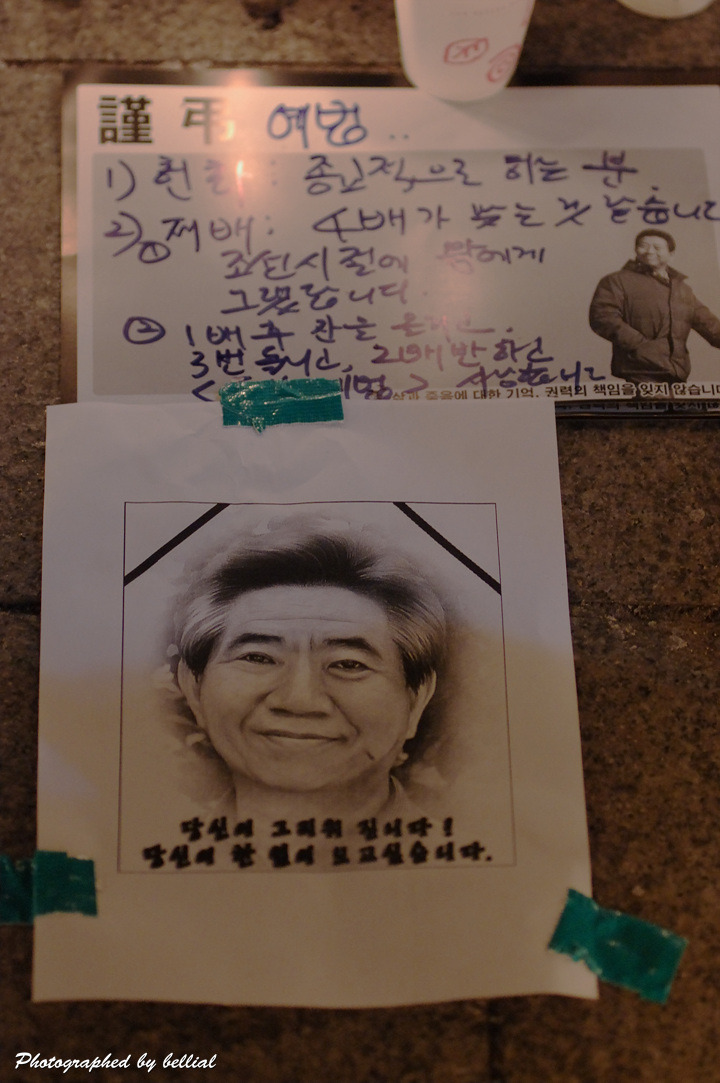 謹 弔 예법 ..
1) 헌화 : 종교적으로 하는 분.
2) ① 재배 : 4배가 맞는 것 같습니다
조선시절에 왕에게
그랬답니다.
② 1배 후 잔을 올리고.
3번 돌리고, 2배반 하고
예법 > 사상입니다
삶과 죽음에 대한 기억, 권력의 책임을 잊지 않습니다
당신이 그리워 집니다 !
당신이 한 없이 보고싶습니다.
Photographed by bellial